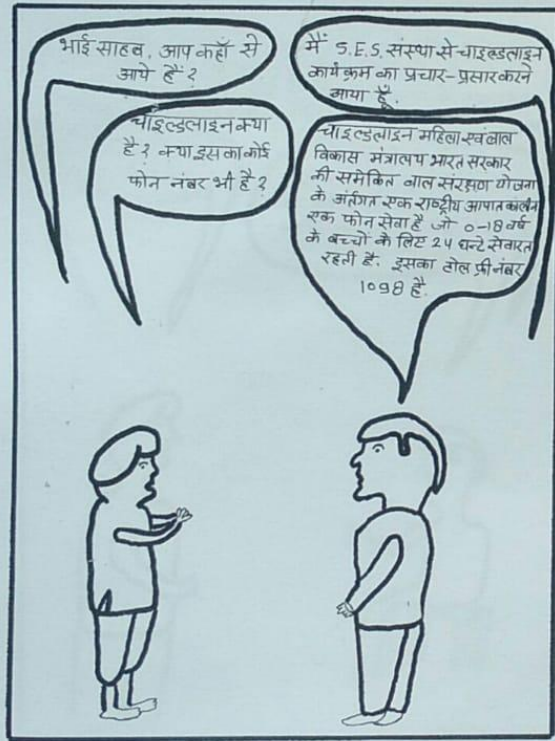 भाई साहब, आप कहाँ से
आये हैं?
मैं S.E.S. संस्था से चाइल्डलाइन
कार्यक्रम का प्रचार-प्रसार करने
आया हूँ.
चाइल्डलाइन क्या
है? क्या इसका कोई
फोन नंबर भी है?
चाइल्डलाइन महिला एवं बाल
विकास मंत्रालय भारत सरकार
की समेकित बाल संरक्षण योजना
के अंर्तगत एक राष्ट्रीय आपातकालीन
एक फोन सेवा है जो 0-18 वर्ष
के बच्चों के लिए 24 घन्टे सेवारत
रहती है. इसका टोल फ्री नंबर
1098 है.